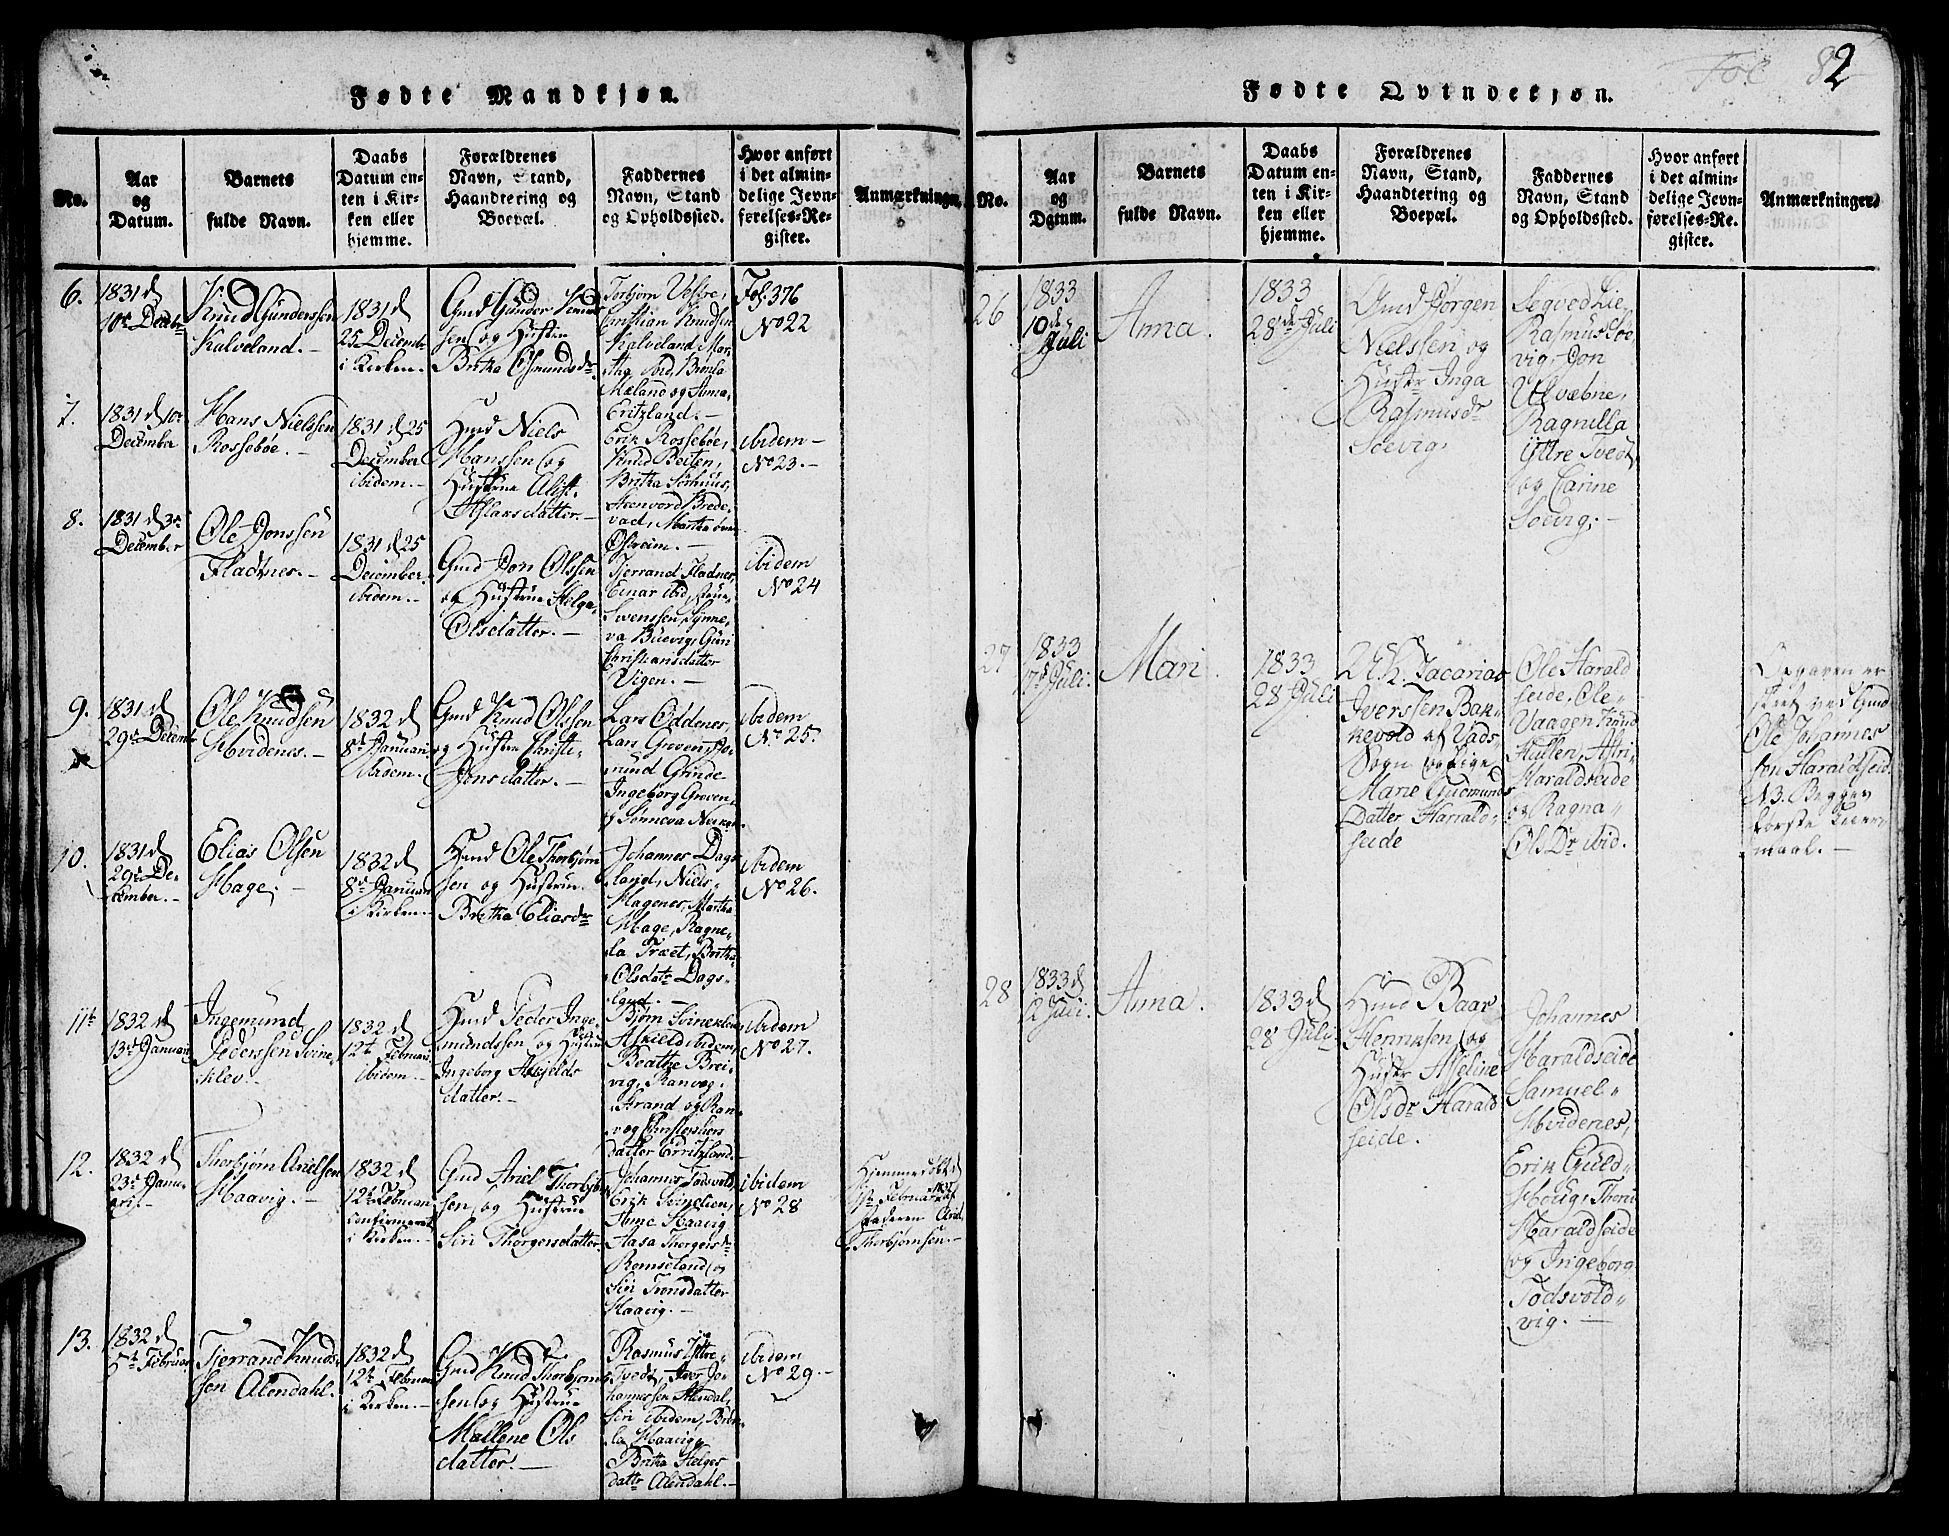 Fødte Mandkjøn.
No.
Aar
og
Datum.
Barnets
fulde Navn.
Daabs
Datum en-
ten i Kir-
ken eller
hjemme.
Forældrenes
Navn, Stand,
Haandtering og
Boepæl.
Faddernes
Navn, Stand
og Opholdssted.
Hvor anført
i det almin-
delige Jevn-
førelses-Re-
gister.
Anmærkninger.
6.
1831 d
10de Decbr
Knud Gundersen
Kalveland.
1831 d
25 Decembr
i Kirken.
Gmd Gunder Knud
sen og Hustru
Britha Osmundsdr
Torbjørn Vestre,
Christian Knudsen
Kalveland, Mar,
tha ibid,
Mæland og Anna
Eritzland.
Fol. 376
No 22
7.
1831 d 10de
December
Hans Nielssen
Rossebøe.
1831 d 25
December
ibidem.
Hmd Niels
Hanssen og
Hustrue
Aslaxdatter.
Erik Rossebøe,
Knud Beiten,
Britha
Brede,
vad, Martha
Østreim.
ibidem
No 23.
8.
1831 d
December
Ole Jonssen
Fladnes.
1831 d 25
December
ibidem.
Gmd Jon Olssen
og Hustrue Helga
Olsdatter.
Tjerrand Fladnes,
Einar ibid,
Swenssen, Synne,
va Buevig, Guri
Christiansdatter
Vigen.
ibidem
No 24
9.
1831 d
29de Decemr
Ole Knudsen
Hvidenes.
1832 d
8de Januari
ibidem.
Gmd Knud Olssen
og Hustru Christi
Jonsdatter.
Lars Oddenes,
Lars Groven,
mund Grinde
Ingeborg Groven,
og Sønneva
ibidem
No 25.
10.
1831 d
29de De-
cember.
Elias Olsen
Hage.
1832 d
8de Januari
i Kirken.
Hmd Ole Thorbjørn
sen og Hustru
Britha Eliasdr
Johannes Dags
land, Niels
Hagenes, Martha
Hage, Ragne,
la Træet, Britha
Olsdatr Dags,
land.
ibidem
No 26.
11te
1832 d
13de Januari
Ingemund
Pederssen Svine,
klev.
1832 d
12te Februari
ibidem.
Hmd Peder Inge,
mundssen og Hustru
Ingeborg Askjelds
datter.
Bjørn Svineklev
Askield ibidem,
Beathe Brei,
vig, Ranveg
Strand og Ran,
veg Christophers
datter Erritzland.
ibidem
No 27.
12.
1832 d
23de Janu
arii.
Thorbjørn Arielsen
Haavig.
1832 d
12te Februari
confirmeret
i Kirken.
Gmd Ariel Thorbjørn
sen og Hustrue
Siri Thorgersdatter.
Johannes Todsvold,
Erik
Anne Haavig
Aasa Thorgersdr
Romseland og
Siri Tronsdatter
Haavig.
ibidem
No 28
Hjemmedøbt d
Februar
Faderen Ariel
Thorbjørnsen.
13.
1832 d
Februar
Tjerrand Knud,
sen Alendahl.
1832 d
12te Februari
i Kirken.
Gmd Knud Thorbjørn
sen og Hustrue
Mallene Ols
datter.
Rasmus Yttre
Tvedt, Iver Jo,
hannessen Alendal,
Siri ibidem,
la Haavig,
Britha Helges
datter Alendahl.
ibidem
No 29.
Fødte Qvindekjøn.
Fol 82
No.
Aar
og
Datum.
Barnets
fulde Navn.
Daabs
Datum en-
ten i Kir-
ken eller
hjemme.
Forældrenes
Navn, Stand,
Haandtering og
Boepæl.
Faddernes
Navn, Stand
og Opholdssted.
Hvor anført
i det almin-
delige Jevn-
førelses-Re-
gister.
Anmærkninger.
26
1833
10de
Juli
Anna.
1833
28de Juli
Gmd Jørgen
Nielssen og
Hustr Inga
Rasmusdr
Soevig,
Segved Lie,
Rasmus Soe
vig, Jon
Ulvæbne,
Ragnilla
Yttre Tvedt,
og Carine
Soevig.
27
1833
17de Juli.
Mari
1833
28 Juli
U.K. Zacarias
Iverssen Bak,
kevold af Vads,
Sogn og Pige
Marie Gudmunds
Datter Harald,
seide
Ole Harald
seide, Ole
Vaagen,
Hatlen, Astri
Haraldseide
og Ragna
Ols Dr ibid.
Opgaven er
skeet ved Gmd
Ole Johannes
sen Haraldseid
N3. Begges
første Leier
maal.
28
1833 d
12 Juli.
Anna.
1833 d
28 Juli
Hmd Baar
Henriksen og
Hustr Asseline
Olsdr Harald
seide.
Johannes
Haraldseide
Samuel
Hvidenes,
Erik Guld,
Schoug,
Haraldseide
og Ingeborg
Todsvold
vig.